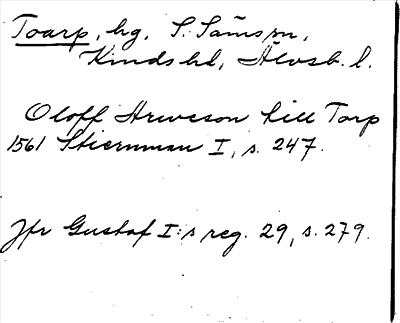 Toarp, hg, S. Säms sn,
Kinds hd, Älvsb. l.
Oloff Arweson till Torp
1561 Stiernman I, s. 247.
Jfr Gustaf I:s reg. 29, s. 279.